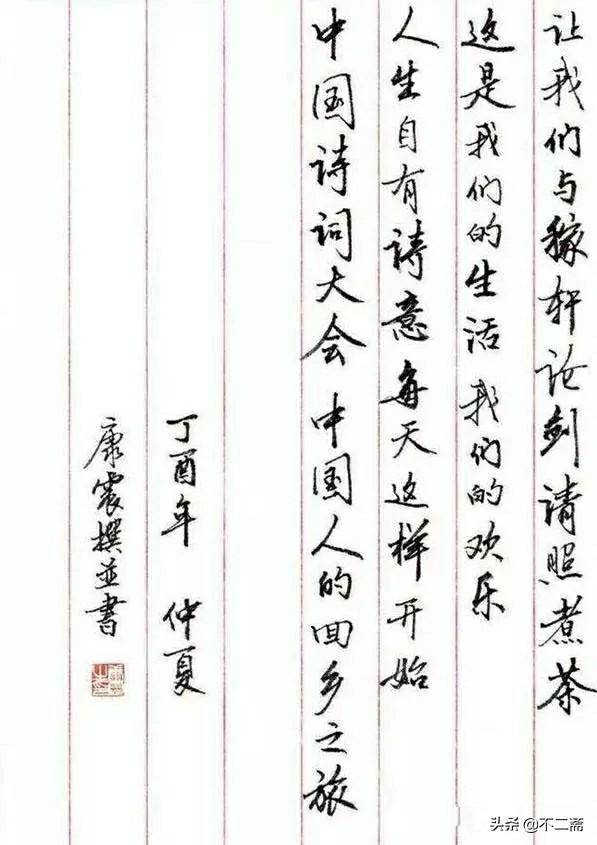 让我们与稼轩论剑请照煮茶
这是我们的生活 我们的欢乐
人生自有诗意每天这样开始
中国诗词大会 中国人的回乡之旅
丁酉年 仲夏
康震撰並書
头条 @不二斋